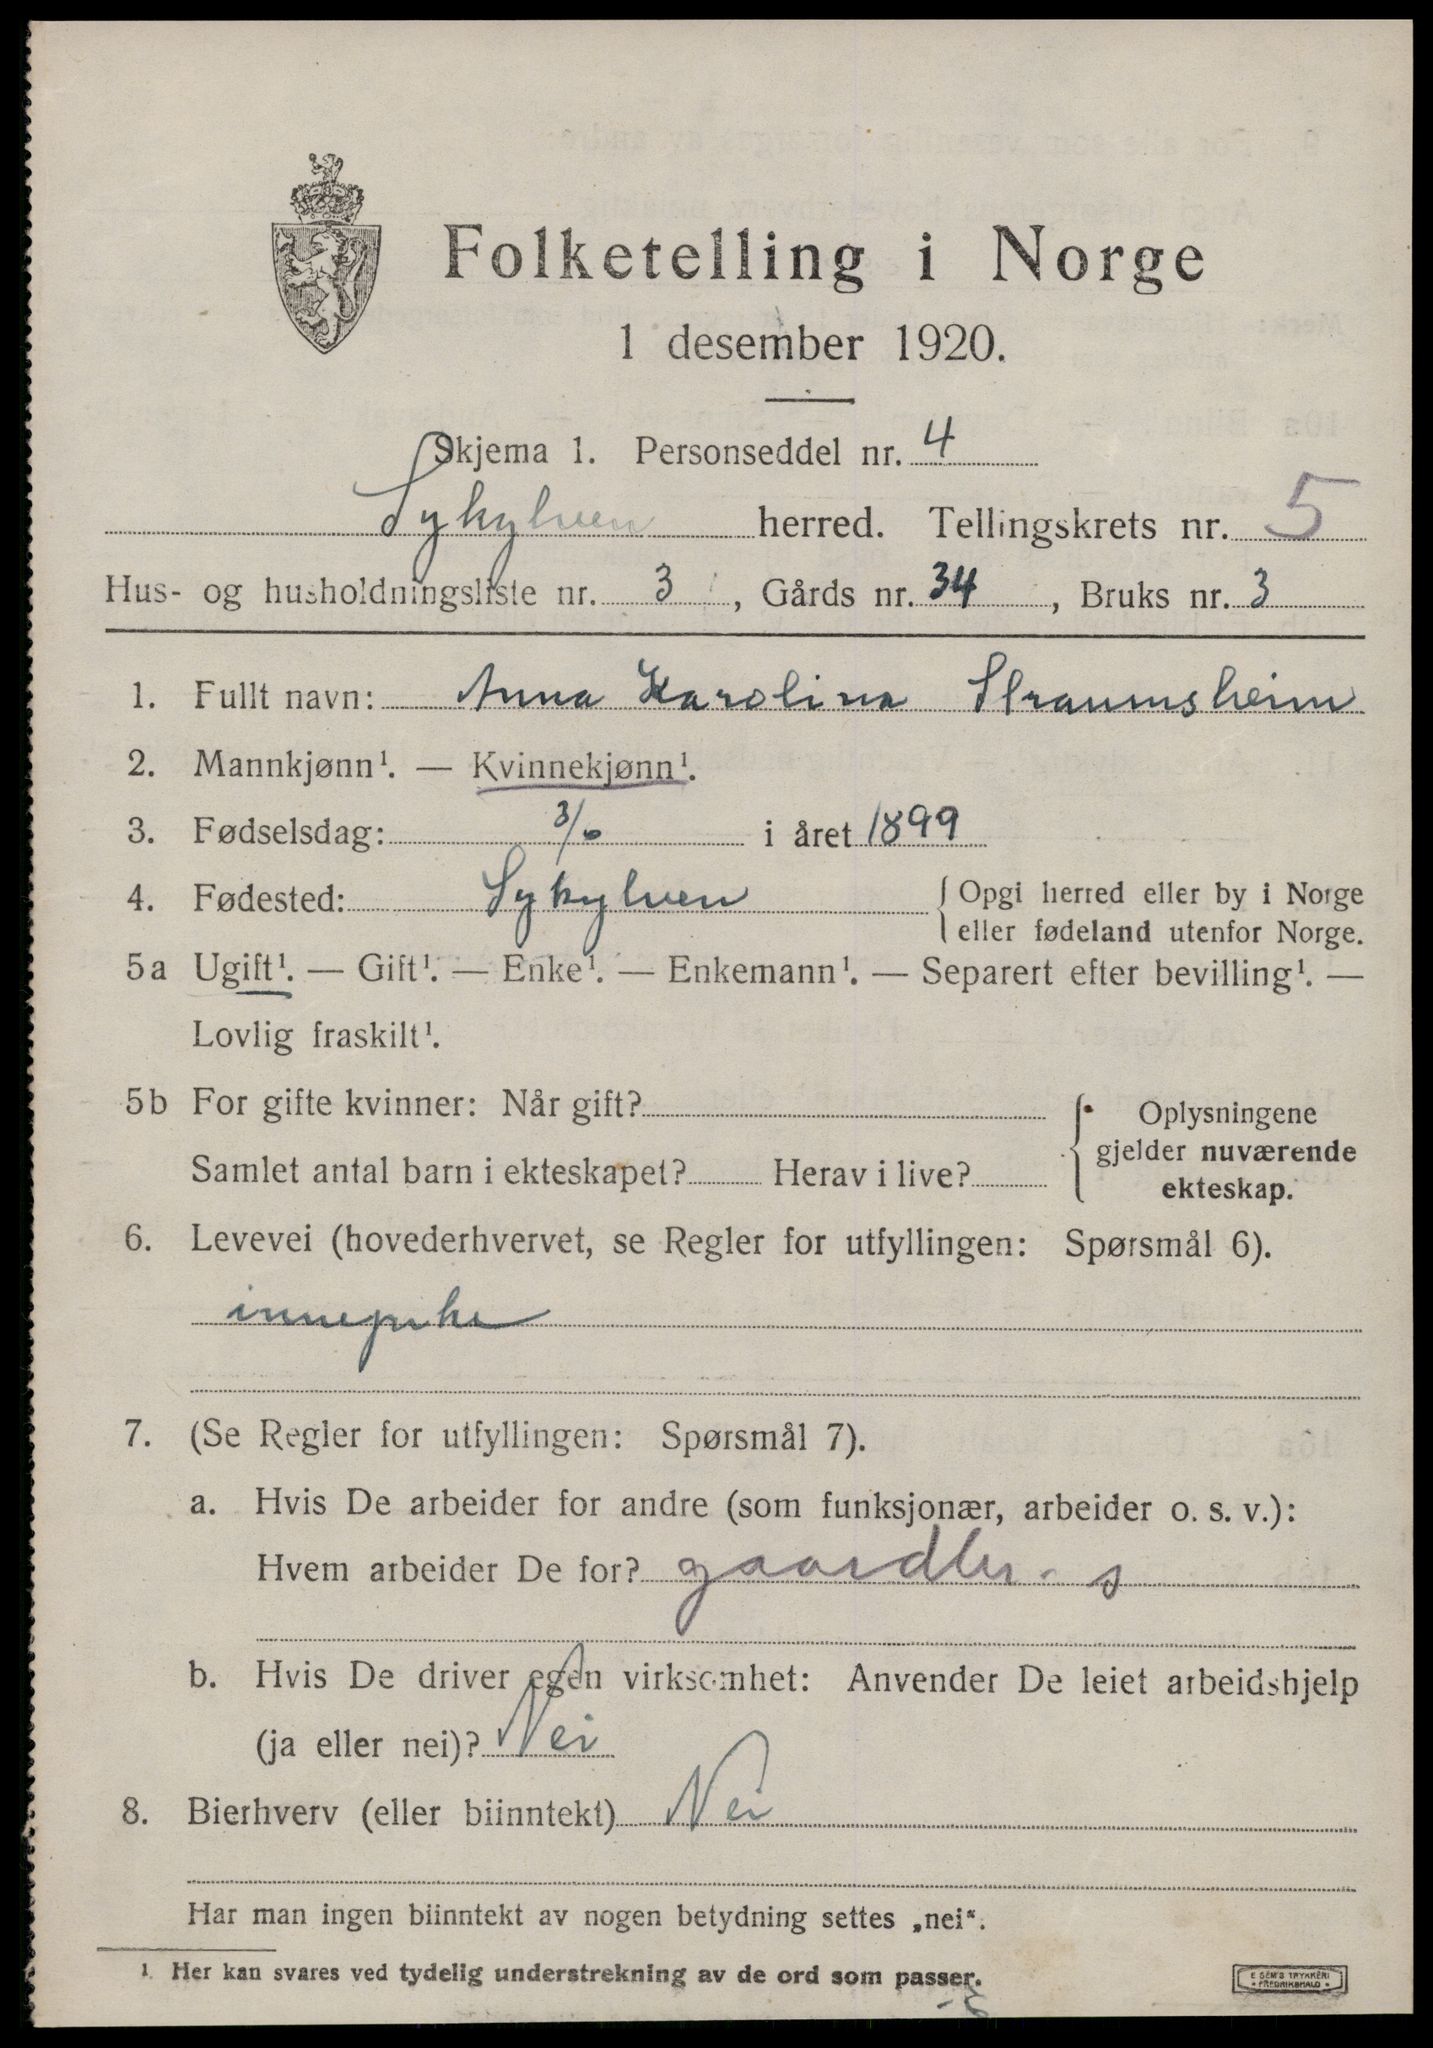 Folketelling i Norge
1 desember 1920.
Skjema 1. Personseddel nr. 4
Sykylven herred. Tellingskrets nr. 5
Hus- og husholdningsliste nr. 3, Gårds nr. 34, Bruks nr. 3
1. Fullt navn: Anna Karolina Straumsheim
2. Mannkjønn¹. — Kvinnekjønn¹.
3. Fødselsdag: 3/6 i året 1899
4. Fødested: Sykylven { Opgi herred eller by i Norge
eller fødeland utenfor Norge.
5a Ugift¹. — Gift¹. — Enke¹. — Enkemann¹. — Separert efter bevilling¹. —
Lovlig fraskilt¹.
5b For gifte kvinner: Når gift?
Samlet antal barn i ekteskapet? Herav i live?
{ Oplysningene
gjelder nuværende
ekteskap.
6. Levevei (hovederhvervet, se Regler for utfyllingen: Spørsmål 6).
innepike
7. (Se Regler for utfyllingen: Spørsmål 7).
a. Hvis De arbeider for andre (som funksjonær, arbeider o. s. v.):
Hvem arbeider De for? s
b. Hvis De driver egen virksomhet: Anvender De leiet arbeidshjelp
(ja eller nei)? Nei
8. Bierhverv (eller biinntekt) Nei
Har man ingen biinntekt av nogen betydning settes „nei“.
1. Her kan svares ved tydelig understrekning av de ord som passer.
E SEM'S TRYKKERI
• FREDRIKSHALD •